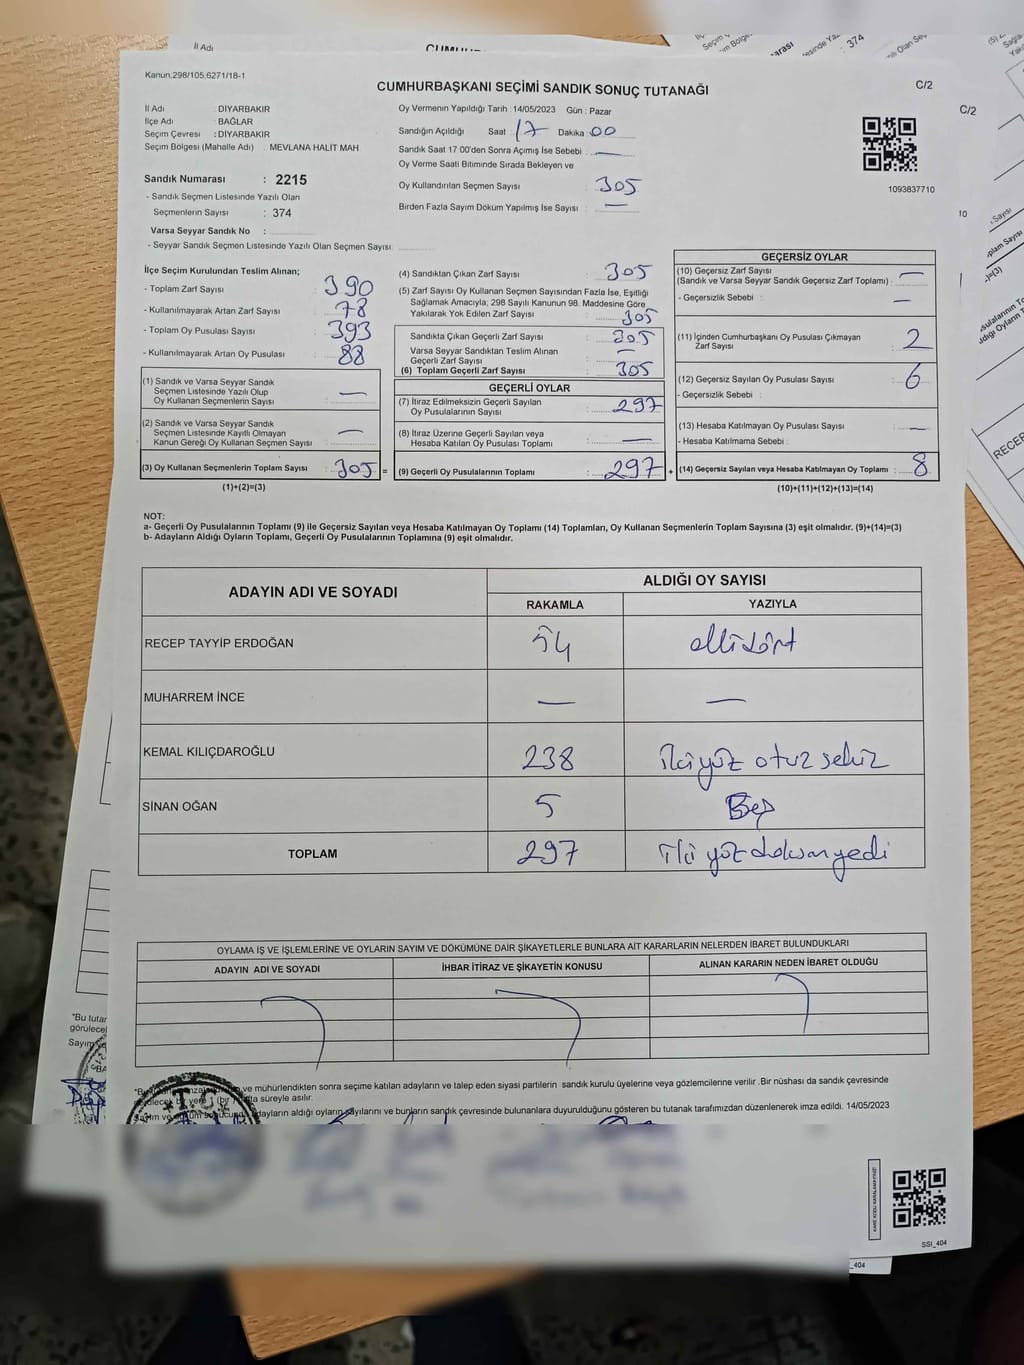 İl Adı
Kanun,298/105,6271/18-1
CUMHURBAŞKANI SEÇİMİ SANDIK SONUÇ TUTANAĞI
C/2
C/2
İl Adı DİYARBAKIR
İlçe Adı : BAĞLAR
Seçim Çevresi : DİYARBAKIR
Seçim Bölgesi (Mahalle Adı) . MEVLANA HALİT MAH.
Oy Vermenin Yapıldığı Tarih :14/05/2023 Gün : Pazar
Sandığın Açıldığı Saat 17 Dakika 00
Sandık Saat 17 00'den Sonra Açımış İse Sebebi : —
Oy Verme Saati Bitiminde Sırada Bekleyen ve
Oy Kullandırılan Seçmen Sayısı 305
Birden Fazla Sayım Döküm Yapılmış İse Sayısı : —
1093837710
Sandık Numarası : 2215
- Sandık Seçmen Listesinde Yazılı Olan
Seçmenlerin Sayısı : 374
Varsa Seyyar Sandık No :
- Seyyar Sandık Seçmen Listesinde Yazılı Olan Seçmen Sayısı:
İlçe Seçim Kurulundan Teslim Alınan;
- Toplam Zarf Sayısı : 390
- Kullanılmayarak Artan Zarf Sayısı : 78
- Toplam Oy Pusulası Sayısı : 393
- Kullanılmayarak Artan Oy Pusulası : 88
(1) Sandık ve Varsa Seyyar Sandık
Seçmen Listesinde Yazılı Olup
Oy Kullanan Seçmenlerin Sayısı : —
(2) Sandık ve Varsa Seyyar Sandık
Seçmen Listesinde Kayıtlı Olmayan
Kanun Gereği Oy Kullanan Seçmen Sayısı : —
(3) Oy Kullanan Seçmenlerin Toplam Sayısı : 305 =
(1)+(2)=(3)
(4) Sandıktan Çıkan Zarf Sayısı : 305
(5) Zarf Sayısı Oy Kullanan Seçmen Sayısından Fazla İse, Eşitliği
Sağlamak Amacıyla; 298 Sayılı Kanunun 98. Maddesine Göre
Yakılarak Yok Edilen Zarf Sayısı : 305
Sandıkta Çıkan Geçerli Zarf Sayısı : 305
Varsa Seyyar Sandıktan Teslim Alınan
Geçerli Zarf Sayısı : —
(6) Toplam Geçerli Zarf Sayısı : 305
GEÇERLİ OYLAR
(7) İtiraz Edilmeksizin Geçerli Sayılan
Oy Pusulalarının Sayısı : 297
(8) İtiraz Üzerine Geçerli Sayılan veya
Hesaba Katılan Oy Pusulası Toplamı : —
(9) Geçerli Oy Pusulalarının Toplamı : 297 +
GEÇERSİZ OYLAR
(10) Geçersiz Zarf Sayısı
(Sandık ve Varsa Seyyar Sandık Geçersiz Zarf Toplamı) : —
- Geçersizlik Sebebi : —
(11) İçinden Cumhurbaşkanı Oy Pusulası Çıkmayan
Zarf Sayısı : 2
(12) Geçersiz Sayılan Oy Pusulası Sayısı : 6
- Geçersizlik Sebebi :
(13) Hesaba Katılmayan Oy Pusulası Sayısı : —
- Hesaba Katılmama Sebebi :
(14) Geçersiz Sayılan veya Hesaba Katılmayan Oy Toplamı : 8
(10)+(11)+(12)+(13)=(14)
NOT:
a- Geçerli Oy Pusulalarının Toplamı (9) ile Geçersiz Sayılan veya Hesaba Katılmayan Oy Toplamı (14) Toplamları, Oy Kullanan Seçmenlerin Toplam Sayısına (3) eşit olmalıdır. (9)+(14)=(3)
b- Adayların Aldığı Oyların Toplamı, Geçerli Oy Pusulalarının Toplamına (9) eşit olmalıdır.
ADAYIN ADI VE SOYADI
ALDIĞI OY SAYISI
RAKAMLA YAZIYLA
RECEP TAYYİP ERDOĞAN 54 ellidört
MUHARREM İNCE — —
KEMAL KILIÇDAROĞLU 238 İkiyüz otuz sekiz
SİNAN OĞAN 5 Beş
TOPLAM 297 iki yüz doksan yedi
OYLAMA İŞ VE İŞLEMLERİNE VE OYLARIN SAYIM VE DÖKÜMÜNE DAİR ŞİKAYETLERLE BUNLARA AİT KARARLARIN NELERDEN İBARET BULUNDUKLARI
ADAYIN ADI VE SOYADI İHBAR İTİRAZ VE ŞİKAYETİN KONUSU ALINAN KARARIN NEDEN İBARET OLDUĞU
ve mühürlendikten sonra seçime katılan adayların ve talep eden siyasi partilerin sandık kurulu üyelerine veya gözlemcilerine verilir .Bir nüshası da sandık çevresinde
süreyle asılır.
adayların aldığı oyların sayılarını ve bunların sandık çevresinde bulunanlara duyurulduğunu gösteren bu tutanak tarafımızdan düzenlenerek imza edildi. 14/05/2023
"Bu tutar
görülece
Sayım
SSİ_404
_404